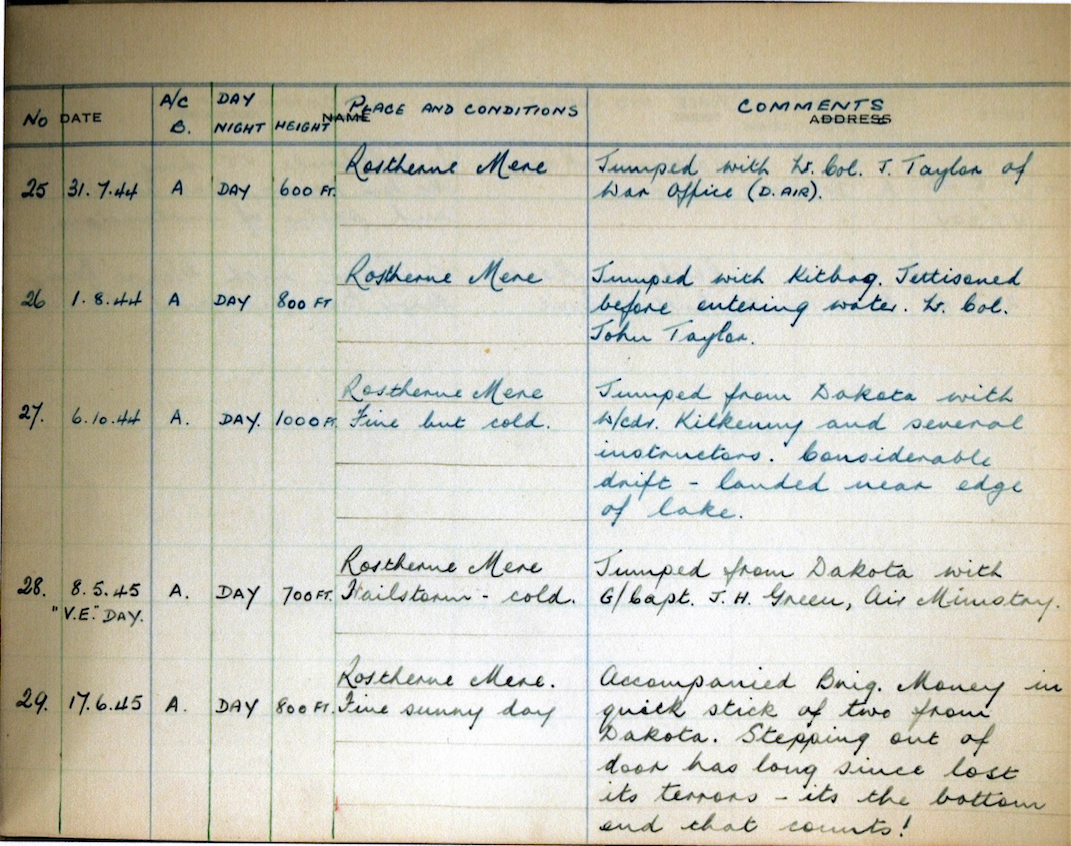 No DATE A/C B. DAY NIGHT HEIGHT NAME PLACE AND CONDITIONS COMMENTS ADDRESS
25 31.7.44 A DAY 600 FT. Rostherne Mere Jumped with Lt. Col. J. Taylor of
War Office (D.AIR).
26 1.8.44 A DAY 800 FT Rostherne Mere Jumped with Kitbag. Jettisoned
before entering water. Lt. Col.
John Taylor.
27. 6.10.44 A. DAY. 1000 FT. Rostherne Mere Jumped from Dakota with
Fine but cold. W/cdr. Kilkenny and several
instructors. Considerable
drift - landed near edge
of lake.
28. 8.5.45 A. DAY 700 FT. Rostherne Mere Jumped from Dakota with
"V.E." DAY. Hailstorm - cold. G/Capt. J. H. Green, Air Ministry.
29. 17.6.45 A. DAY 800 FT. Rostherne Mere. Accompanied Brig. Money in
Fine sunny day quick stick of two from
Dakota. Stepping out of
door has long since lost
its terrors - its the bottom
end that counts!